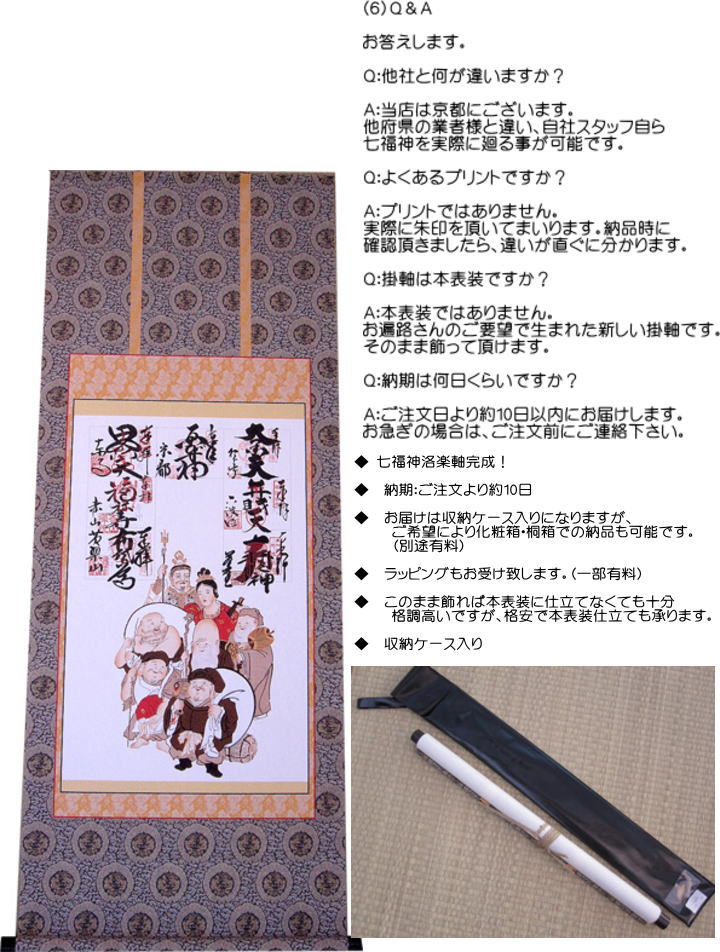 (6)Q&A
お答えします。
Q:他社と何が違いますか?
A:当店は京都にございます。
他府県の業者様と違い、自社スタッフ自ら
七福神を実際に廻る事が可能です。
Q:よくあるプリントですか?
A:プリントではありません。
実際に朱印を頂いてまいります。納品時に
確認頂きましたら、違いが直ぐに分かります。
Q:掛軸は本表装ですか?
A:本表装ではありません。
お遍路さんのご要望で生まれた新しい掛軸です。
そのまま飾って頂けます。
Q:納期は何日くらいですか?
A:ご注文日より約10日以内にお届けします。
お急ぎの場合は、ご注文前にご連絡下さい。
◆ 七福神洛楽軸完成!
◆ 納期:ご注文より約10日
◆ お届けは収納ケース入りになりますが、
ご希望により化粧箱・桐箱での納品も可能です。
(別途有料)
◆ ラッピングもお受け致します。(一部有料)
◆ このまま飾れば本表装に仕立てなくても十分
格調高いですが、格安で本表装仕立ても承ります。
◆ 収納ケース入り